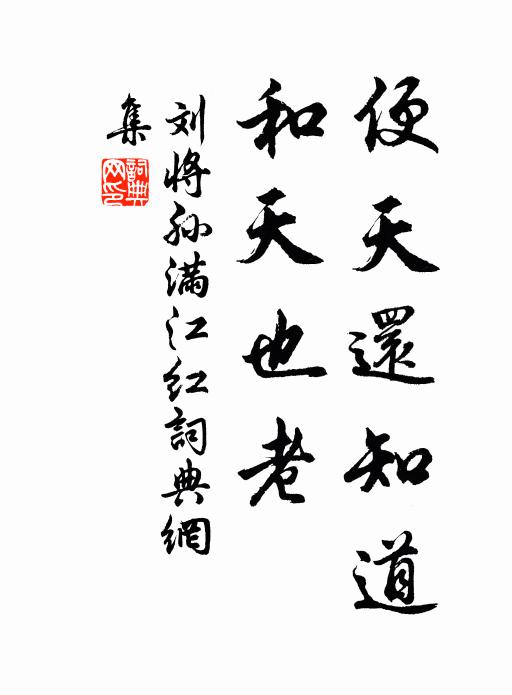 便天還知道
和天也老
刘將孙满江红詞典網
集
詞典
网印